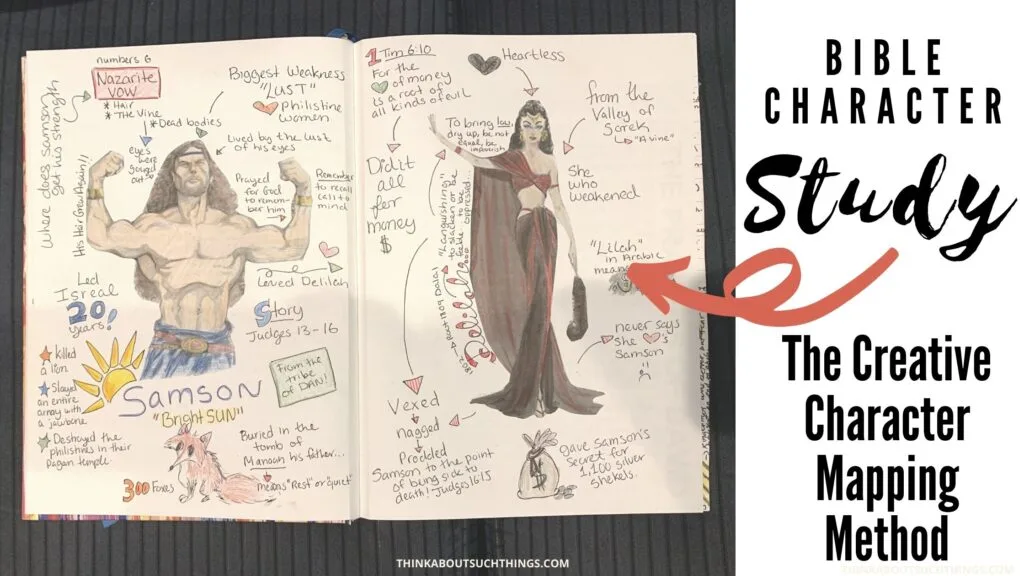 numbers 6
Nazarite
vow
* Hair
* The Vine
* Dead bodies
where does Samson
get his strength
His Hair Grew Again!!!
eyes
were
gouged
out
Biggest Weakness
"LUST"
Philistine
women
Lived by the lust
of his eyes
Prayed
for God
to remem-
ber him
Remember
to recall
call to
mind
Loved Delilah
Led
Isreal
20
years!
Story
Judges 13-16
killed
a lion
Slayed
an entire
army with
a jawbone
Destroyed the
philistines in their
Pagan temple
SAMSON
"Bright SUN"
From the
tribe
of DAN!
300 Foxes
Buried in the
tomb of
Manoah his father...
means "Rest" or "Quiet"
1 Tim 6:10
For the
of money
is a root of
all kinds of evil
Did it
all
for
money
$
Heartless
To bring low,
dry up, be not
equal, be
impoverish
"Languishing"
to slacken or be
feeble to be
oppressed...
Delilah...
from the
Valley of
Sorek
"A vine"
She
who
weakened
"Lilah"
in Arabic
means
never says
she
's
Samson
Vexed
nagged
Prodded
Samson to the point
of being sick to
death! Judges 16:15
gave Samson's
secret for
1,100 silver
shekels.
THINKABOUTSUCHTHINGS.COM
BIBLE
CHARACTER
Study
The Creative
Character
Mapping
Method
THINKABOUTSUCHTHINGS.COM